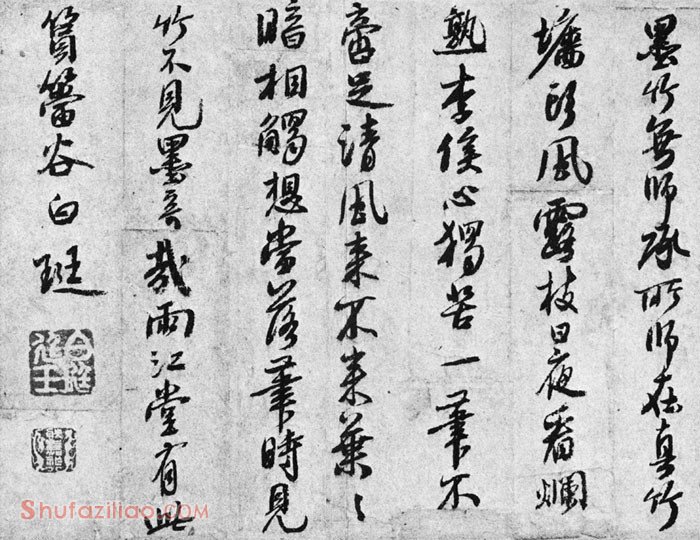 墨竹無師承所師在真竹
墻頭風露枝日夜看爛
熟李侯心獨苦一筆不
啻足清風來不來葉〻
暗相觸想當落筆時見
竹不見墨奇哉雨江堂有此
篔簹谷白珽
Shufaziliao.COM